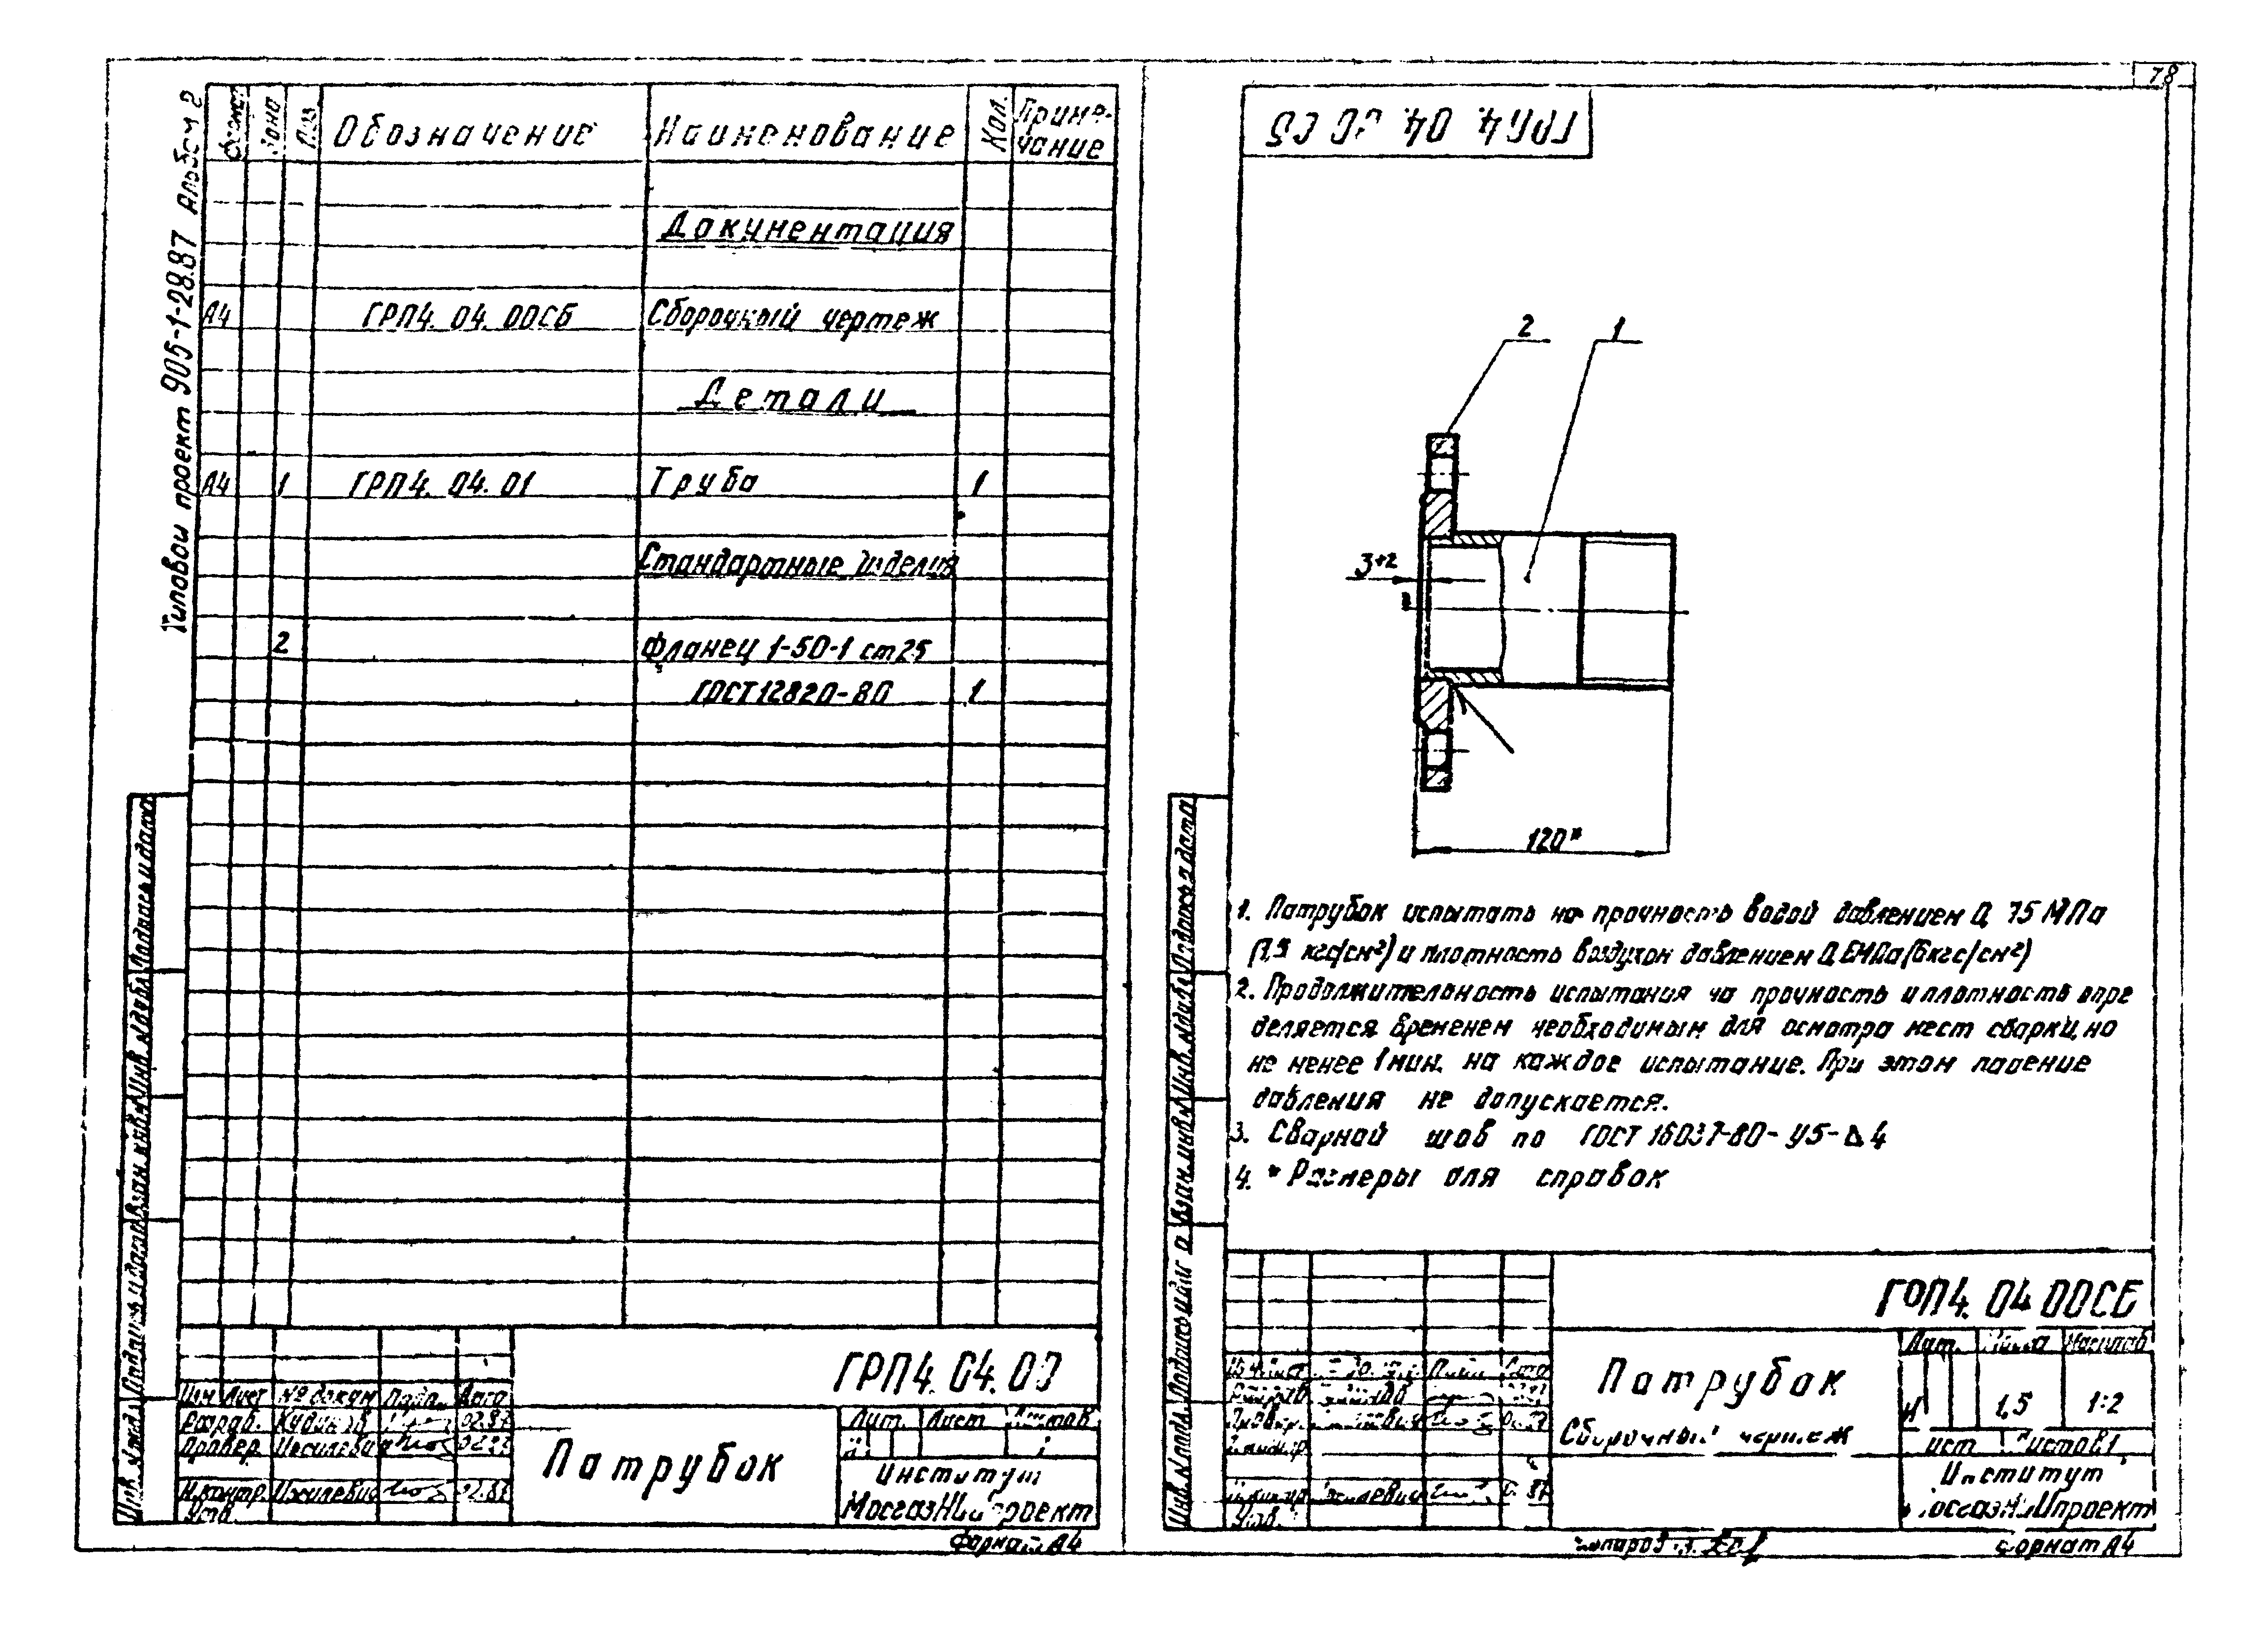 78
Типовой проект 905-1-28.87 Альбом 2
Формат Зона Поз Обозначение Наименование Кол. Приме-
чание
Документация
А4 ГРП4. 04. 00СБ Сборочный чертеж
Детали
А4 1 ГРП4. 04. 01 Труба 1
Стандартные изделия
2 Фланец 1-50-1 ст25
ГОСТ 12820-80 1
Инв.№подл. Подпись и дата Взам.инв.№ Инв.№дубл. Подпись и дата
ГРП4. 04. 00
Изм Лист № докум Подп. Дата
Разраб. 02.87
Провер. 02.87
Н.контр. 02.87
Утв.
Патрубок
Лит. Лист Листов
И 1
Институт
МосгазНИИпроект
Формат А4
ГРП4. 04. 00 СБ
2 1
3+2
120*
1. Патрубок испытать на прочность водой давлением 0,75 МПа
(7,5 кгс/см²) и плотность воздухом давлением 0,6МПа (6кгс/см²)
2. Продолжительность испытания на прочность и плотность опре
деляется временем необходимым для осмотра мест сварки, но
не менее 1 мин. на каждое испытание. При этом падение
давления не допускается.
3. Сварной шов по ГОСТ 16037-80-У5-⊿4
4. * Размеры для справок
Инв.№подл. Подпись и дата Взам.инв.№ Инв.№дубл. Подпись и дата
ГРП4. 04 00СБ
Патрубок
Сборочный чертеж
Лит. Масса Масштаб
И 1,5 1:2
Лист Листов 1
Институт
МосгазНИИпроект
Разраб.
Провер.
Т.контр.
Н.контр. 87
Утв.
Копировал
Формат А4